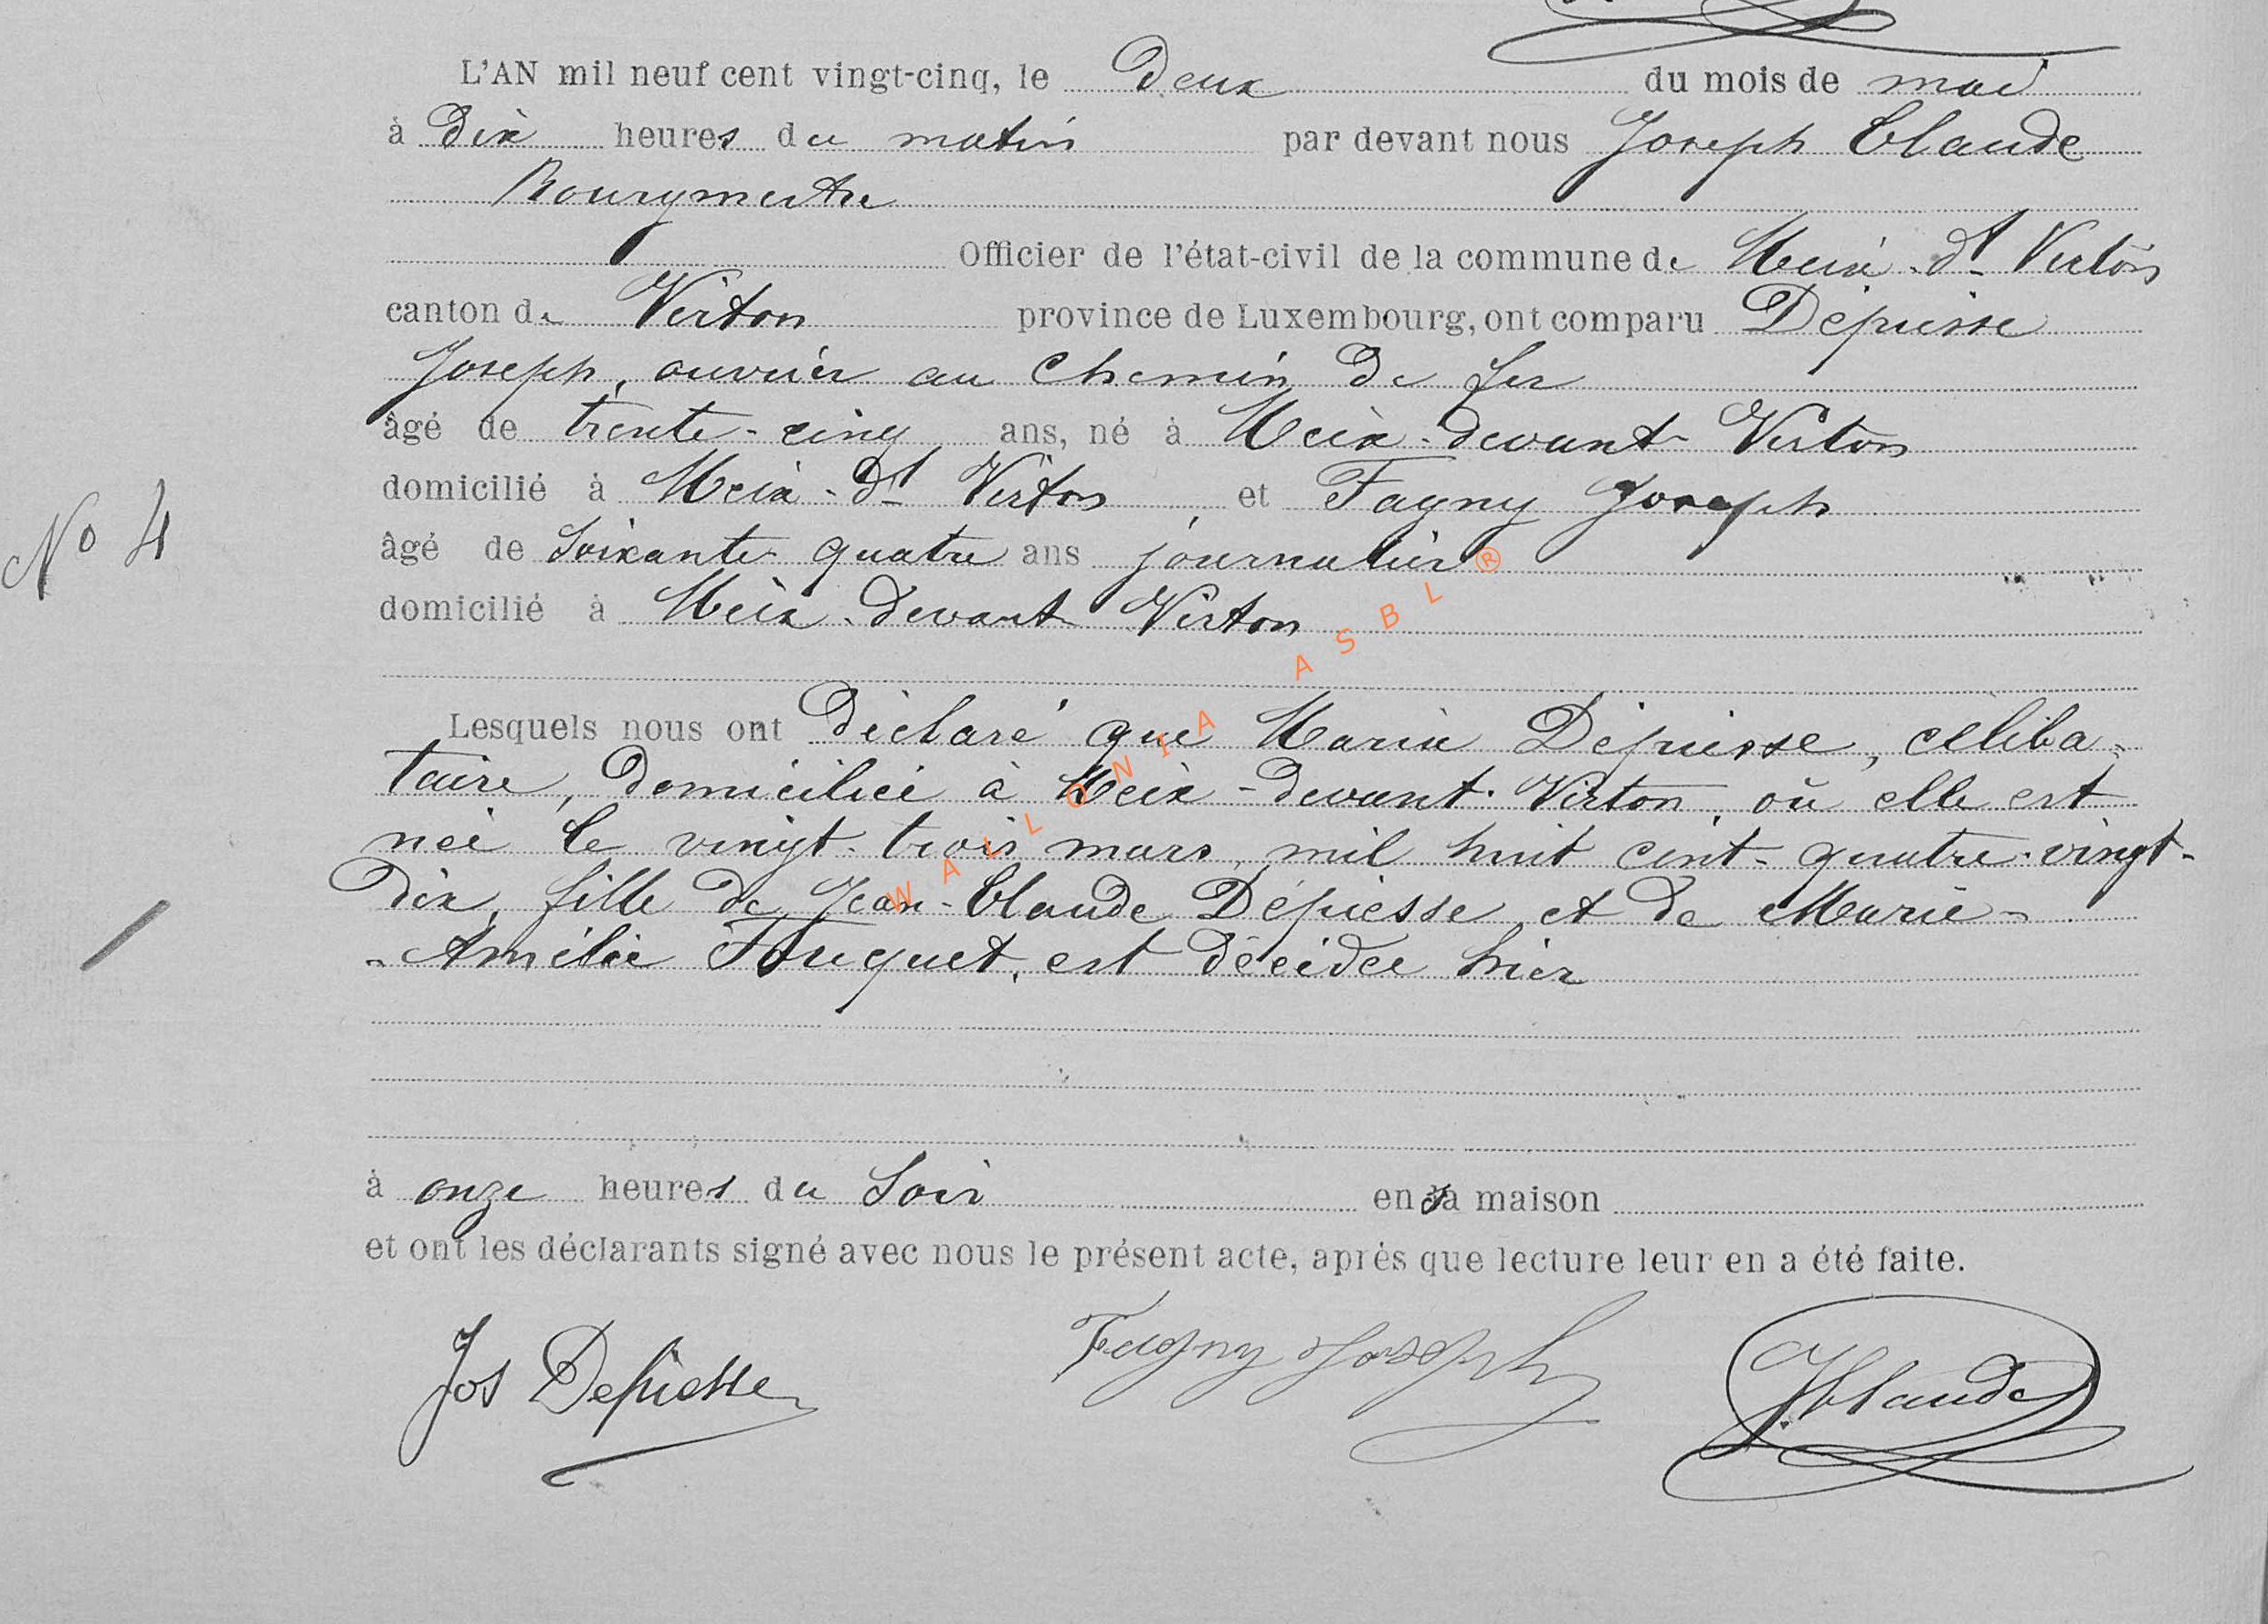 L'AN mil neuf cent vingt-cinq, le Deux du mois de mai
à Dix heures du matin par devant nous Joseph Claude
Bourgmestre
Officier de l'état-civil de la commune de Meix-dt Virton
canton de Virton province de Luxembourg, ont comparu Dépiesse
Joseph, ouvrier au chemin de fer
âgé de trente-cinq ans, né à Meix-devant-Virton
domicilié à Meix-dt Virton et Fagny Joseph
N° 4
âgé de Soixante-quatre ans journalier
domicilié à Meix-devant Virton
Lesquels nous ont Déclaré que Marie Dépiesse, céliba-
taire, Domiciliée à Meix-devant-Virton, où elle est
née le vingt-trois mars, mil huit cent-quatre-vingt-
Dix, fille de Jean-Claude Dépiesse et de Marie-
-Amélie Fouquet, est décédée hier
à onze heures du Soir en sa maison
et ont les déclarants signé avec nous le présent acte, après que lecture leur en a été faite.
Jos Depiesse Fagny Joseph J Claude
WALLONIA ASBL ®